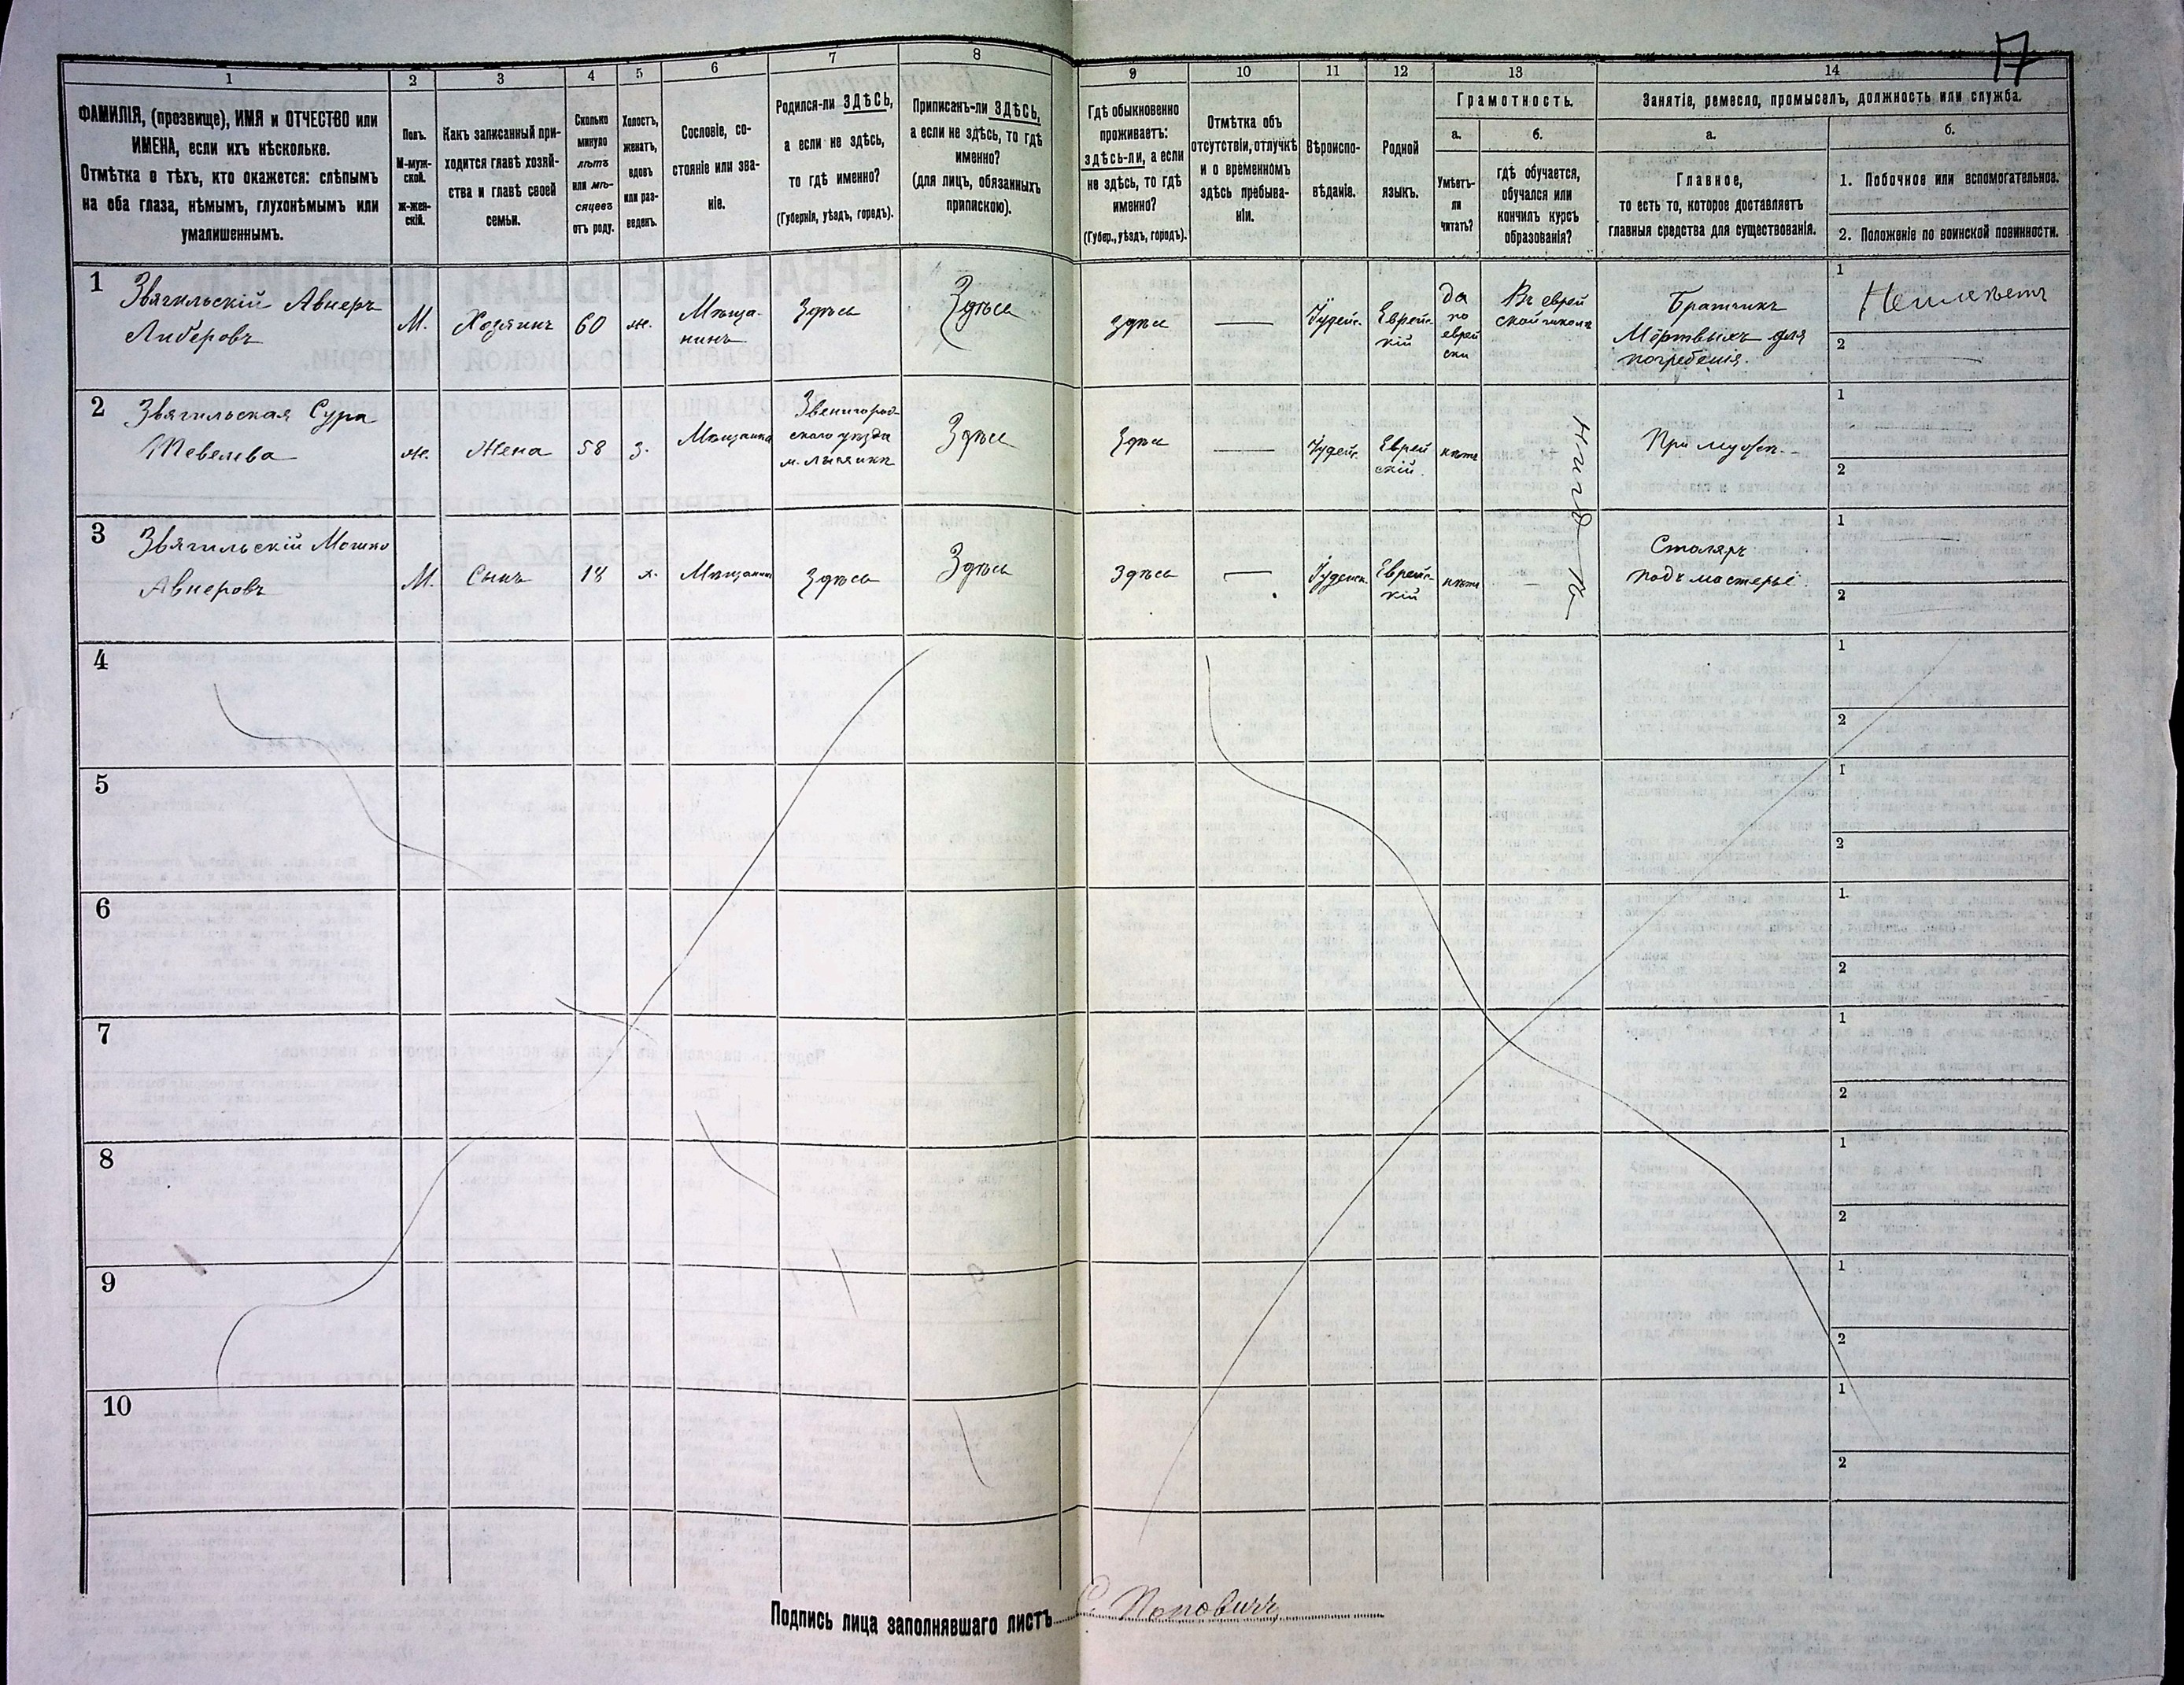 17
1
2
3
4
5
6
7
8
9
10
11
12
13
14
ФАМИЛІЯ, (прозвище), ИМЯ и ОТЧЕСТВО или
ИМЕНА, если ихъ нѣсколько.
Отмѣтка о тѣхъ, кто окажется: слѣпымъ
на оба глаза, нѣмымъ, глухонѣмымъ или
умалишеннымъ.
Полъ.
М-муж-
ской.
ж-жен-
скій.
Какъ записанный при-
ходится главѣ хозяй-
ства и главѣ своей
семьи.
Сколько
минуло
лѣтъ
или мѣ-
сяцевъ
отъ роду.
Холостъ,
женатъ,
вдовъ
или раз-
веденъ.
Сословіе, со-
стояніе или зва-
ніе.
Родился-ли ЗДѢСЬ,
а если не здѣсь,
то гдѣ именно?
(Губернія, уѣздъ, городъ).
Приписанъ-ли ЗДѢСЬ,
а если не здѣсь, то гдѣ
именно?
(для лицъ, обязанныхъ
припискою).
Гдѣ обыкновенно
проживаетъ:
здѣсь-ли, а если
не здѣсь, то гдѣ
именно?
(Губер., уѣздъ, городъ).
Отмѣтка объ
отсутствіи, отлучкѣ
и о временномъ
здѣсь пребыва-
ніи.
Вѣроиспо-
вѣданіе.
Родной
языкъ.
Грамотность.
а.
Умѣетъ-
ли
читать?
б.
гдѣ обучается,
обучался или
кончилъ курсъ
образованія?
Занятіе, ремесло, промыселъ, должность или служба.
а.
Главное,
то есть то, которое доставляетъ
главныя средства для существованія.
б.
1. Побочное или вспомогательное.
2. Положеніе по воинской повинности.
1
Звягильскій Авнеръ
Либеровъ
М.
Хозяинъ
60
ж.
Мѣща-
нинъ
Здѣсь
Здѣсь
здѣсь
—
Іудейс.
Еврейс-
кій
да
по
еврей
ски
Въ еврей
ской школѣ
Братчикъ
Мёртвыхъ для
погребенія.
1
Неимѣетъ
2
2
Звягильская Сура
Шевелева
ж.
Жена
58
з.
Мѣщанка
Звенигород-
скаго уѣзда
м. Лысянки
Здѣсь
Здѣсь
—
Іудейс.
Еврей
скій.
нѣтъ
При мужѣ.
1
2
3
Звягильскій Мошко
Авнеровъ
М.
Сынъ
18
х.
Мѣщанинъ
Здѣсь
Здѣсь
здѣсь
—
Іудейск.
Еврейс-
кій
нѣтъ
нигдѣ
Столяръ
подъ мастерьё
1
2
4
1
2
5
1
2
6
1.
2
7
1
2
8
1
2
9
1
2
10
1
2
Подпись лица заполнявшаго листъ С. Поповичъ